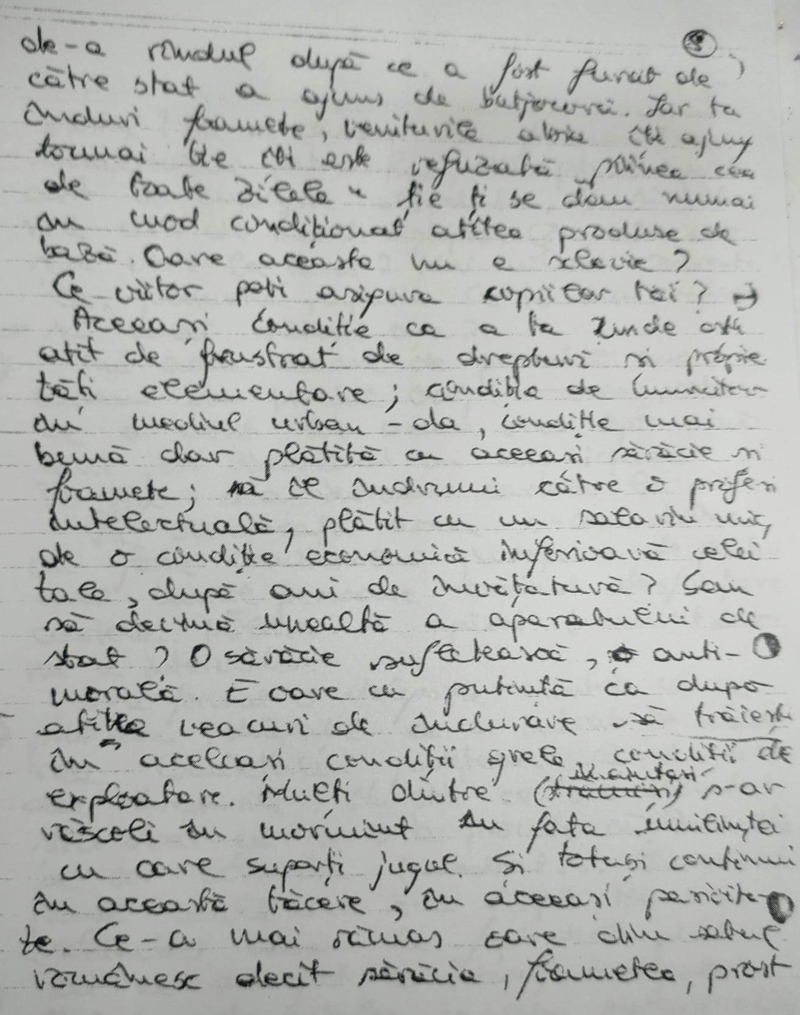 de-a rîndul după ce a fost furat de
către stat a ajuns de batjocură. Iar tu
înduri foamete, veniturile abia îți ajung
tocmai ție îți este refuzată pîinea cea
de toate zilele " ție ți se dau numai
în mod condiționat atîtea produse de
bază. Oare aceasta nu e sclavie?
Ce viitor poți asigura copiilor tăi? →
Aceeași condiție ca a ta unde ești
atît de frustrat de drepturi și proprie
tăți elementare; condiția de muncitor
din mediul urban - da, condiție mai
bună dar plătită cu aceeași sărăcie și
foamete; să îl îndrumi către o profesi
intelectuală, plătit cu un salariu mic,
de o condiție economică inferioară celei
tale, după ani de învățătură? Sau
să devină unealtă a aparatului de
stat? O sărăcie sufletească, anti-
morală. E oare cu putință ca după
atîtea veacuri de îndurare să trăiești
în aceleași condiții grele, condiții de
exploatare. Mulți dintre (străbuni) s-ar
răscoli în mormînt în fața umilinței
cu care suporți jugul. Și totuși continui
în această tăcere, în aceeași
te. Ce-a mai rămas oare din satul
românesc decît sărăcia, foametea, prost